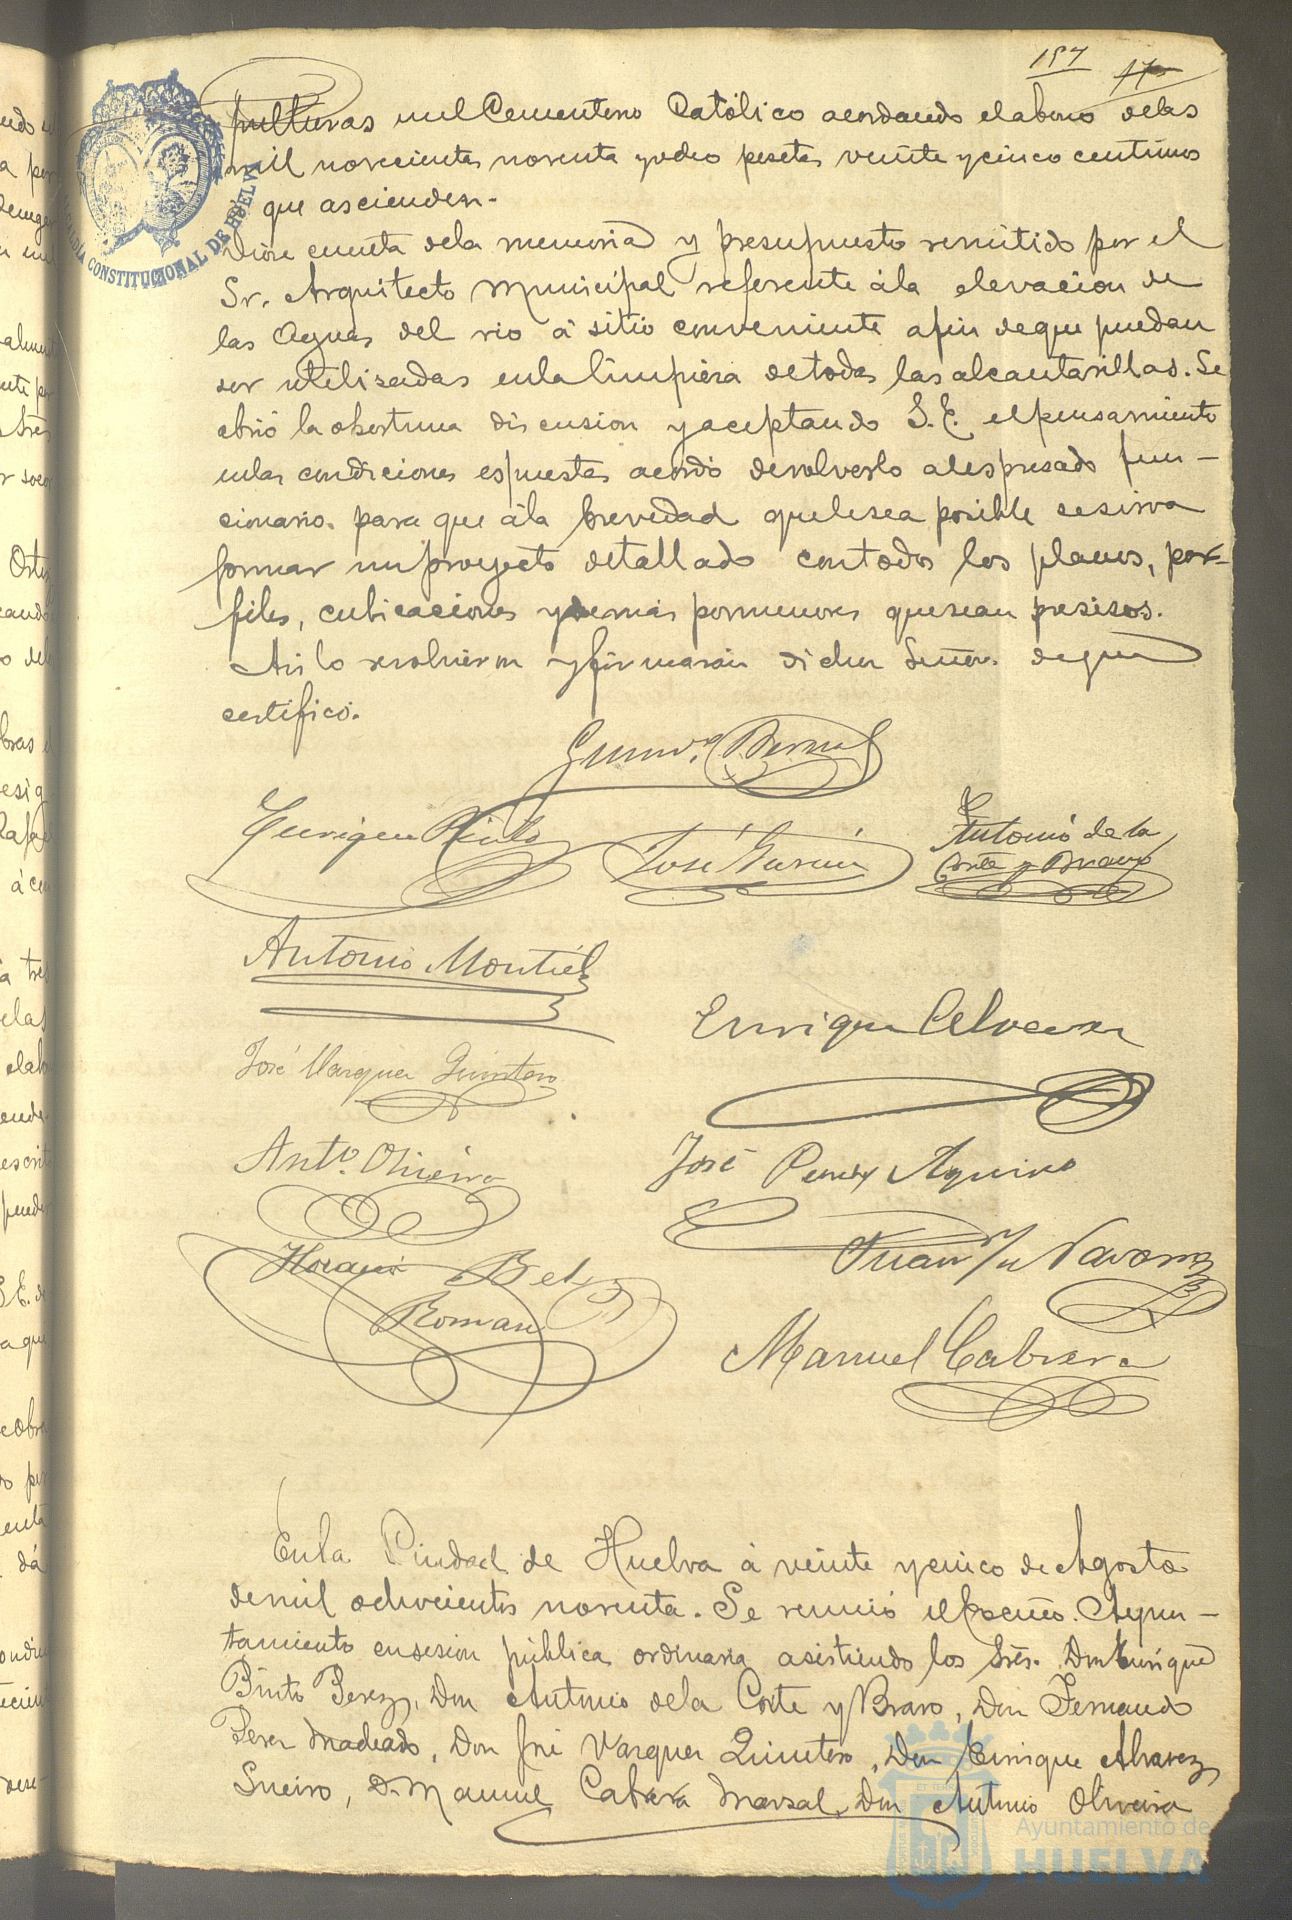 157
pulturas en el Cementerio Católico acordando el abono de las
mil novecientas noventa y ocho pesetas veinte y cinco centimos
que ascienden.
Diose cuenta de la memoria y presupuesto remitido por el
Sr. Arquitecto Municipal referente á la elevacion de
las Aguas del rio á sitio conveniente a fin de que puedan
ser utilisadas en la limpiesa de todas las alcantarillas. Se
abrió la oportuna discusion y aceptando S.E. el pensamiento
en las condiciones espuestas acordó devolverlo al espresado fun-
cionario. para que á la brevedad que le sea posible se sirva
formar un proyecto detallado con todos los planos, per-
files, cubicaciones y demas pormenores que sean presisos.
Asi lo resolvieron y firmaran dichos Señors. de que
certifico.
Gumdo. Bernal
Enrique Pinto
José Garcia
Antonio de la
Corte y Bravo
Antonio Montiel
Enrique Alvarez
José Vazquez Quintero
Anto. Oliveira
José Perez Aquino
Horacio Bel
Roman
Juan In Navarro
Manuel Cabrera
En la Ciudad de Huelva á veinte y cinco de Agosto
de mil ochocientos noventa. Se reunió el Excmo. Ayun-
tamiento en sesion pública ordinaria asistiendo los Sres. Don Enrique
Pinto Perez, Don Antonio de la Corte y Bravo, Don Fernando
Perez Machado, Don José Vazquez Quintero, Don Enrique Alvarez
Sueiro, D. Manuel Cabrera Marsal, Don Antonio Oliveira
ALCALDÍA CONSTITUCIONAL DE HUELVA
Ayuntamiento de
HUELVA